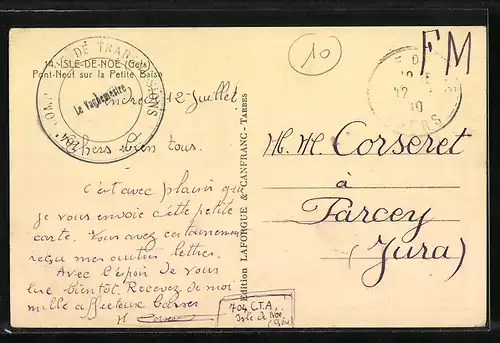 14. ISLE-DE-NOÉ (Gers)
Pont-Neuf sur la Petite Baïse
DE TRANSMISSIONS
Le Vaguemestre
10
FM
Vendredi 12 Juillet
Chers bien tous.
C'est avec plaisir que
je vous envoie cette petite
carte. Vous avez certainement
reçu mes autres lettres.
Avec l'espoir de vous
lire bientôt. Recevez de moi
mille affectueux baisers
H Corseret
Edition LAFORGUE & CANFRANC - TARBES
M. M. Corseret
à
Parcey
(Jura)
704 C.T.A.
Isle de Noé
(Gers)